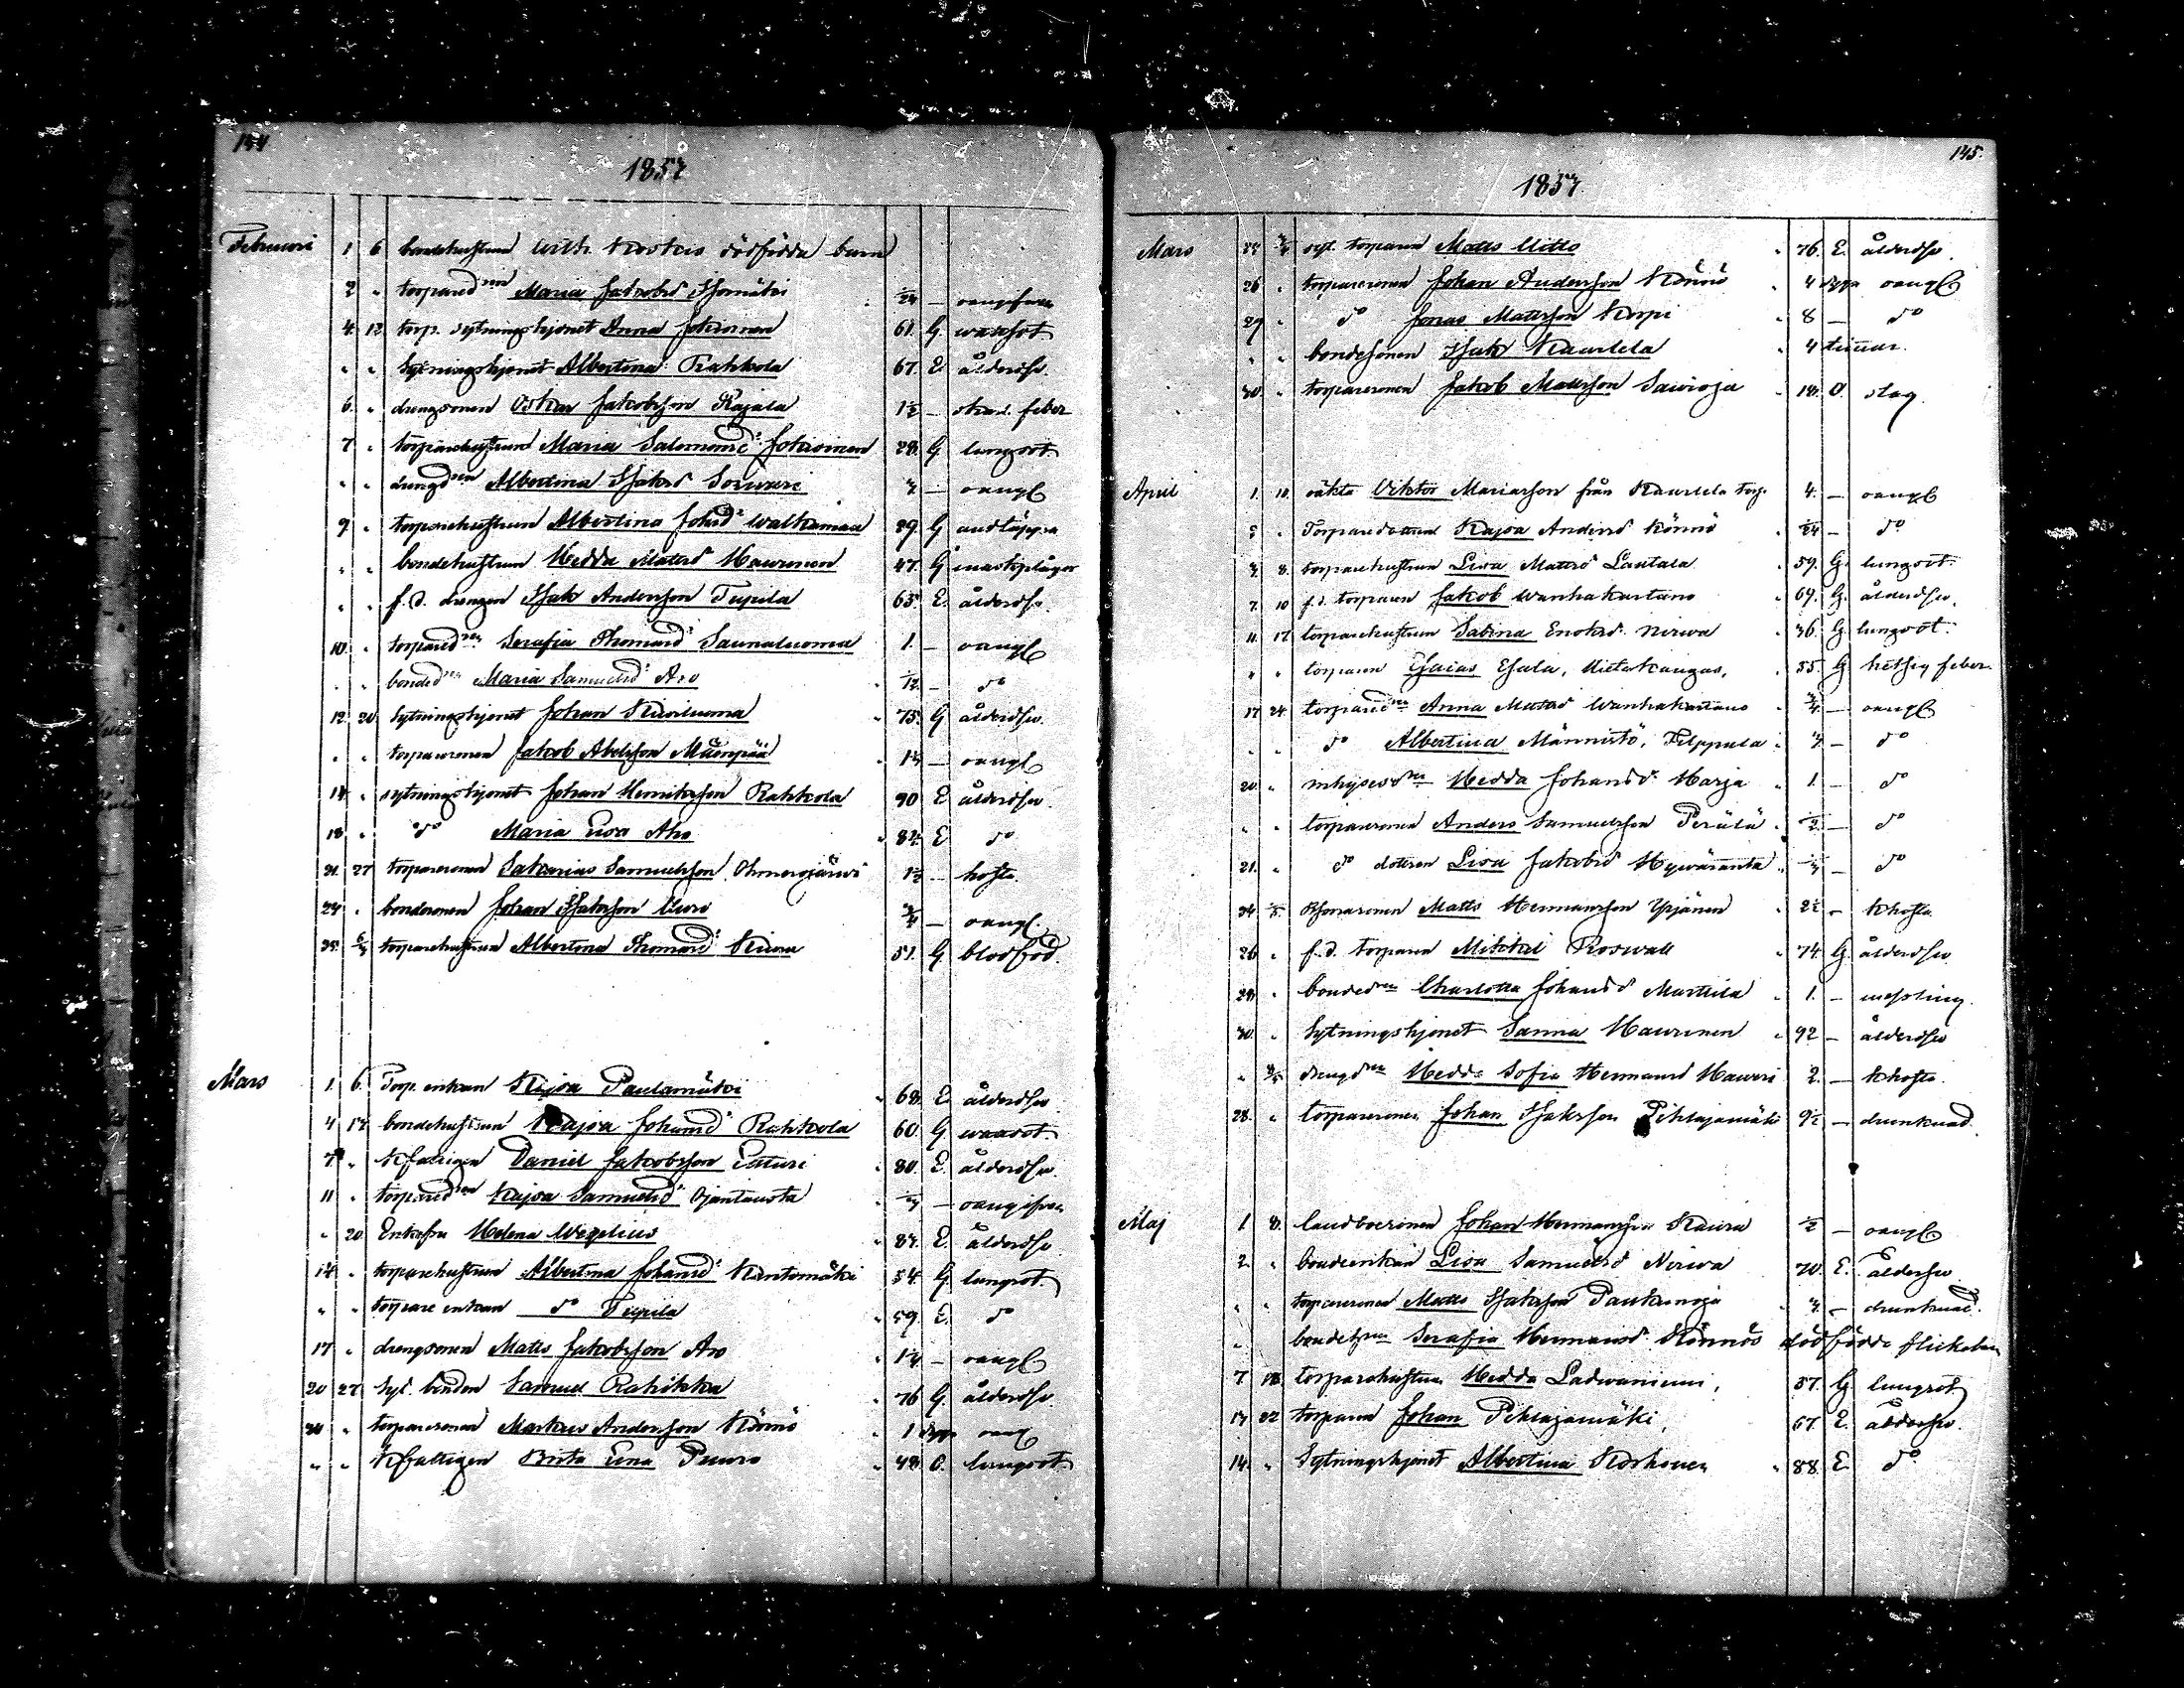 154
1857
Februari 1 6 bondehustrun Wilh. Koskis dödfödda barn
2 " torpared:rn Maria Jakobsd Isomäki 1/24 — oangifven
4 12 torp. sytningshjonet Anna Jokioinen 61. G. wattsot
" " Sytningshjonet Albertina Rahkola 67. E ålderdsv.
6. " drengsonen Oskar Jakobsson Rajala 1½ — skarl. feber
7 " torparehustrun Maria Salomonsd: Jokioinen 28. G lungsot.
" " drengd:rn Albertina Isaksd Soivari — oangl
9 " torparehustrun Albertina Johsd: Walkamaa 29. G andtäppa
" " bondehustrun Hedda Mattsd Haurinen 47. G
" " f.d. drengen Isak Andersson Tupila 65. E. ålderdsv.
10. " torpared:rn Serafia Thomasd: Saunaluoma 1. — oangl
" " bonded:rn Maria Samuelsd: Aro 1/12 — do
12 20 Sytningshjonet Johan Kiviluoma " 75. G ålderdsv.
" " torparsonen Jakob Abelsson Mäenpää " 1¼ — oangl
14 " sytningshjonet Johan Henriksson Rahkola 90 E ålderdsv.
18 " do Maria Lisa Aho " 82. E do
21. 27 torparesonen Sakarias Samuelsson 1½ — hosta
24 " bondesonen Johan Isaksson ¾ — oangl.
25. torparehustrun Albertina Thomasd: 51. G. blodsjod.
Mars 1. 6. Torp. enkan Kajsa Paulamäki " 68. E. ålderdsv
4 12 bondehustrun Kajsa Johansd: Rahkola 60. G wattsot.
7 " Kfattigen Daniel Jakobsson " 80. E. ålderdsv
11 " torpared:rn Kajsa Samuelsd: Ojantausta " — oangifven
" 20 Enkefru Helena Wegelius " 87. E. ålderdsv
14 " torparehustrun Albertina Johansd: Kantomäki " 54. G lungsot.
" " torpare enkan do Tupila " 59. E. do
17 " drengsonen Matts Jakobsson Aro " 1¼ — oangl
20 27 Syt. bonden Samuel Rahikka " 76 G. ålderdsv.
" torparesonen Markus Andersson Könnö " 1 dygn oangl
" " Kfattigen Brita Lena Puuro " 48. O. lungsot
145.
1857
Mars syt. torparen Matts Uitto " 76. E. ålderdsv.
26 " torparesonen Johan Andersson Könnö " 4 dyga oangl
29 " do Jonas Mattsson Korpi " 8 — do
" " bondesonen Isak Kaurlela " 4 timar.
30. " torparesonen Jakob Mattsson Savioja " 18. O. slag
April 1. 10. oäkta Viktor Mariasson från Kaurlela torp. 4. — oangl
" Torparedottern Kajsa Andersd Könnö " 1/24 — do
8. torparehustrun Lisa Mattsd Lautala " 59. G. lungsot.
7. 10 f.d. torparen Jakob Wanhakartano " 69. G. ålderdsv.
11. 17. torparehustrun Sabina Enoksd: Nirwa " 36. G lungsot.
" " torparen Esaias Esala, Uietakangas, " 55. G hetsig feber.
17 24. torpared:rn Anna Mattsd Wanhakartano " ¾ — oangl
" " do Albertina Männistö, Filppula " — do
20. " inhysesd:rn Hedda Johansd: Harja " 1. — do
" " torparesonen Anders Samuelsson Perälä " ½ — do
21. " do dottern Lisa Jakobsd Hywäranta " — do
24. Matts Hermansson Ypjänen " 2½ — Khosta
26 " f.d. torparen Mikkel Roswall " 74. G. ålderdsv
29. " bonded:rn Charlotta Johansd Marttila " 1. — messling.
30. " Sytningshjonet Sanna Haurinen " 92 — ålderdsv
" drengd:rn Hedda Sofia Hermansd Hauru 2. — Khosta.
28. " torparesonen Johan Isaksson Pihlajamäki 9½ — drunknad.
Maj 1 8. landboesonen Johan Hermansson Kaura ½ — oangl
2 " bondeenkan Lisa Samuelsd Nirwa 70. E. ålderdsv
" " torparesonen Matts Isaksson — drunknad.
" bondeh:rn Serafia Hermansd. Könnös dödfödde flickebarn
7 18. torparehustrun Hedda Ladwaniemi, 37. G lungsot
14 22 torparen Johan Pihlajamäki, 67. E. ålderdsv.
14. " Sytningshjonet Albertina Korhonen " 88 E. do